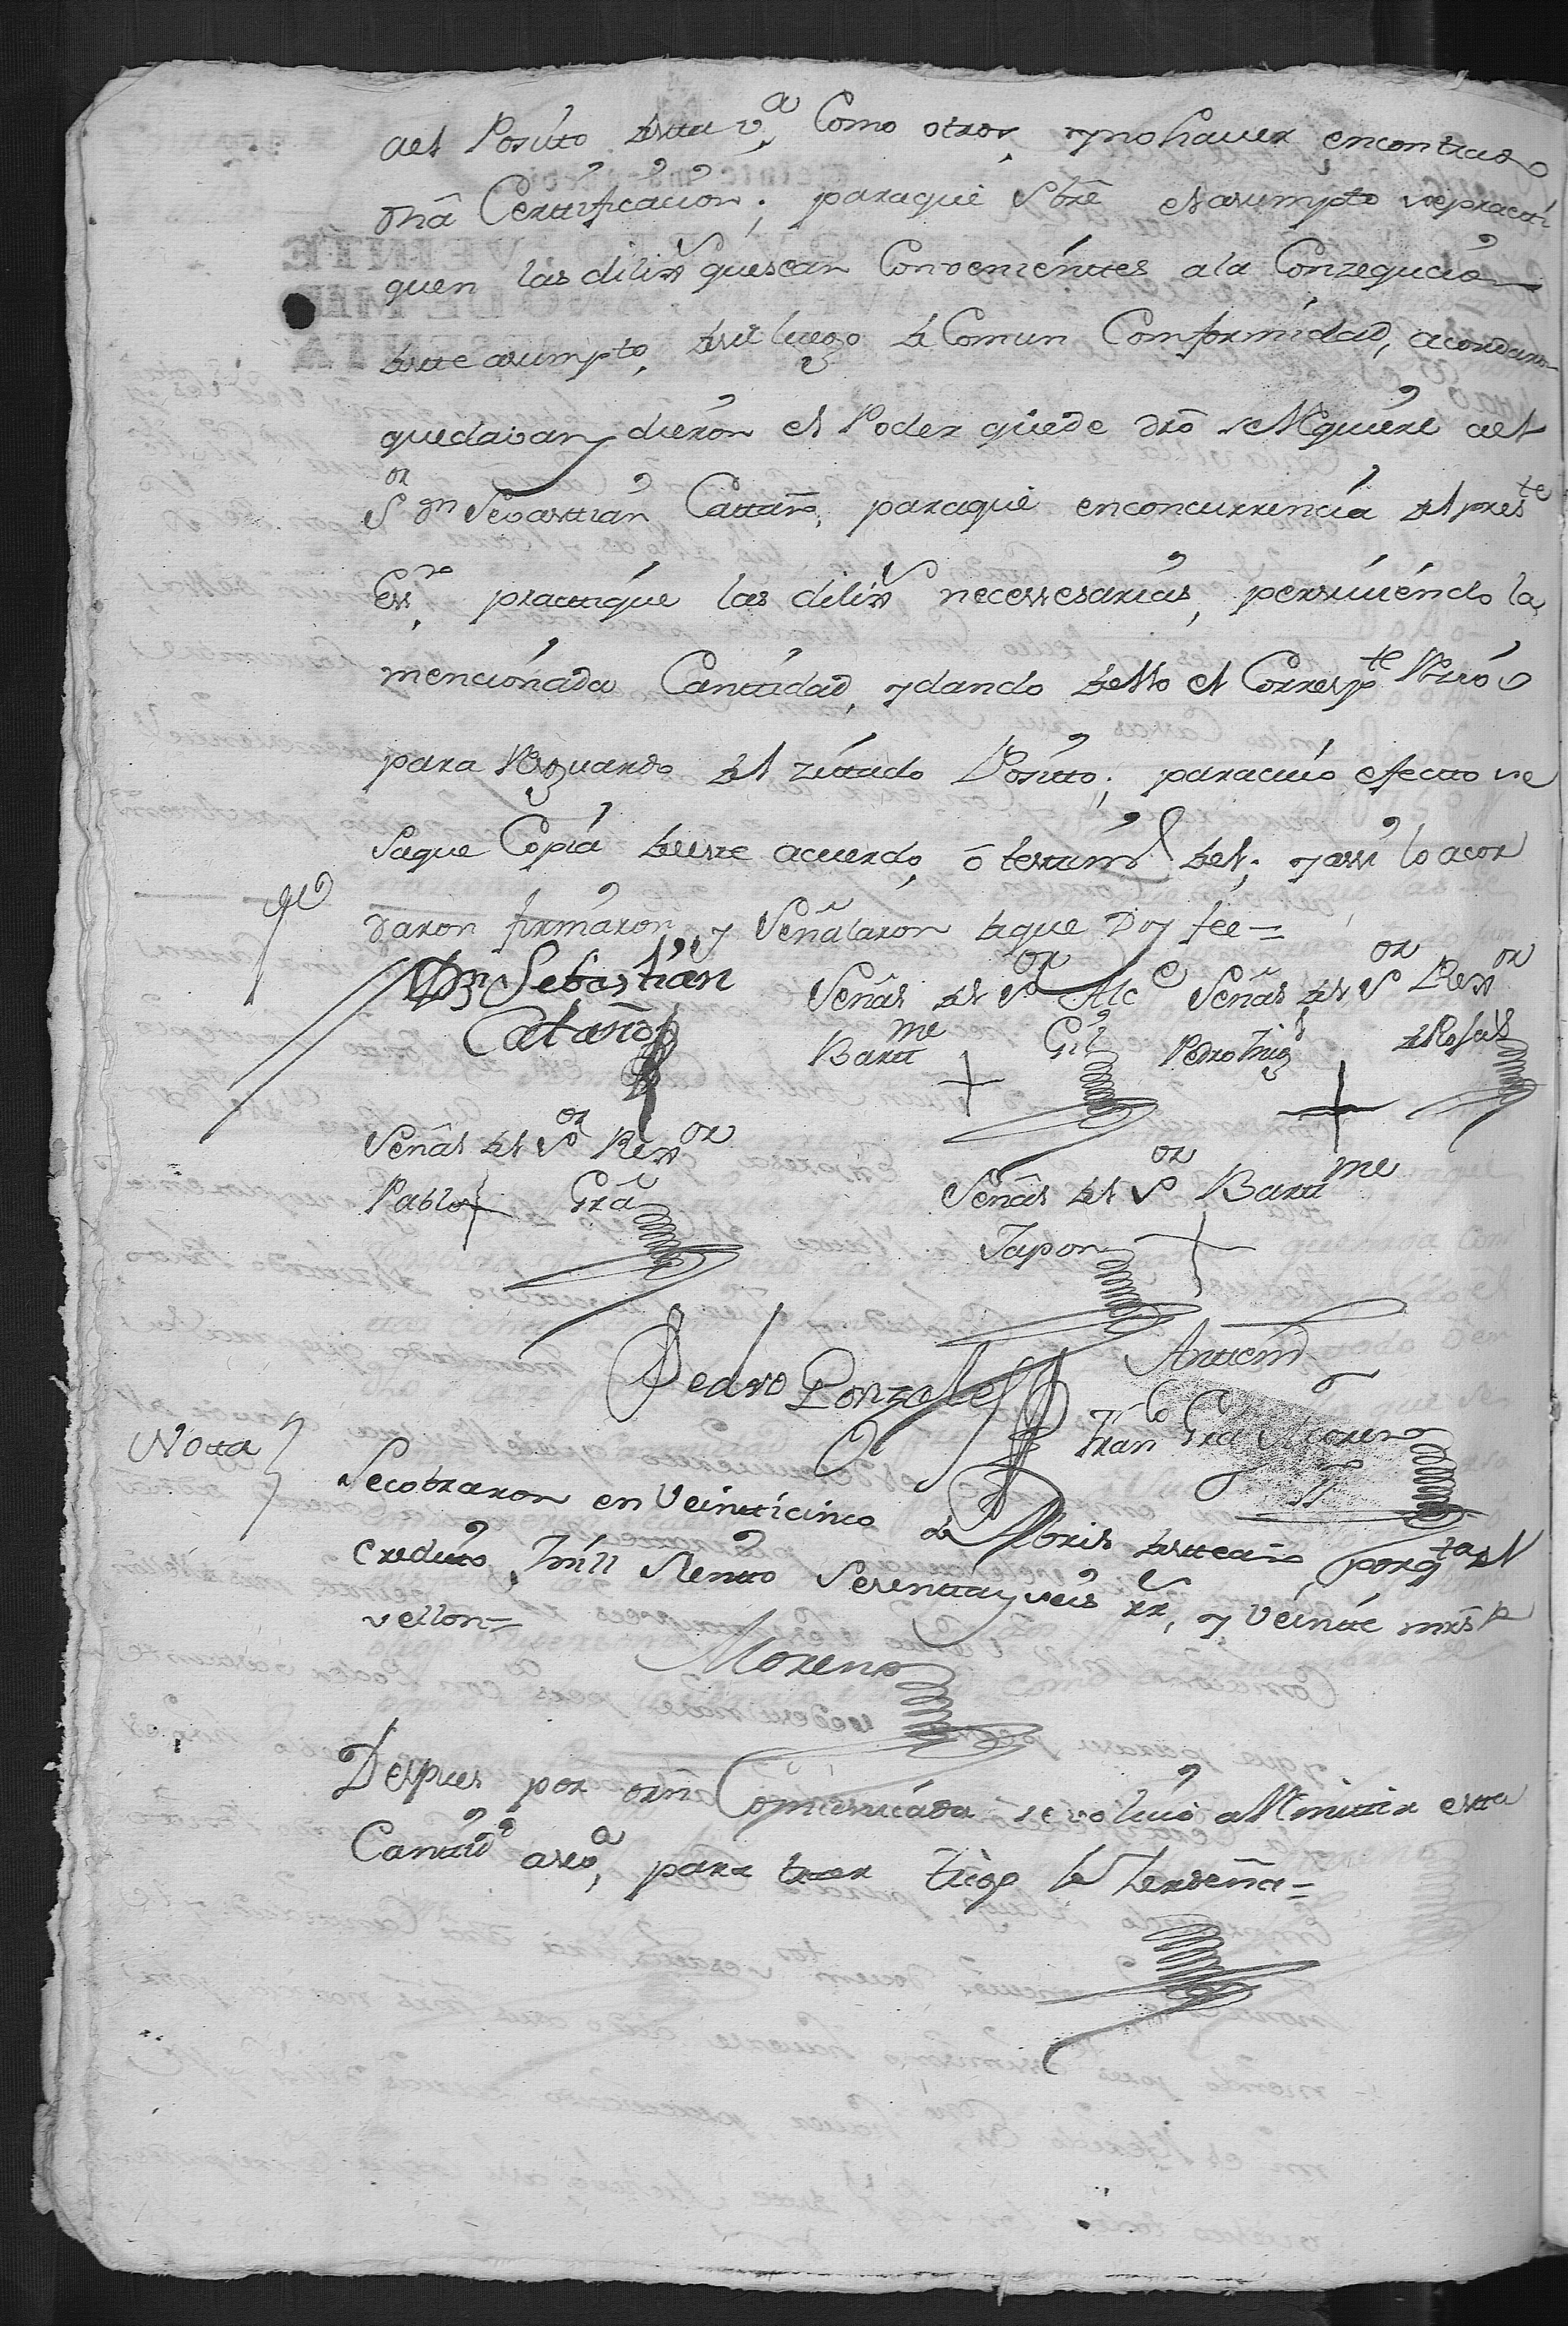 del Posito desta v.ª Como otros, y no haver encontrado
dha Certificacion; para que sbre el asumpto se practi
quen las dilixs que sean Conbenienttes a la Conzequcion
deste asumpto, desde luego de Comun Conformidad, acordaron
quedavan y dieron el Poder que de dro se Rquiere al
Sor Dn Sebasttian Cattaño, para que en concurrencia del preste
Essno practtique las dilixs necessesarias, perciviendo la
mencionada Canttidad, y dando de ello el Correspte Rzivo
para Resguardo del zittado Positto; para cuio efectto se
saque Copia de este acuerdo, o testimo del; y assi lo acor
daron firmaron, y Señalaron de que Doy fee=
Dn Sebastian Señal del Sor Alce Señal del Sor Rexor
Cataño Bartme + Gil Pedro Trigo + de Rosal
Señal del Sor Rexor
Pablo + Gra Señal del Sor Bartme
Tapon +
Pedro Gonzales Antemi
Franco Gra Moreno
Notta
Se cobraron en Veintticinco de Abril deste año por qta del
credito, mill Ciento Sesentta y seis rr, y Veintte mrs
vellon=
Moreno
Despues por orn Comunicada se volvio a Rmittir estta
Canttd a seva, para traer trigo de Zerdeña=